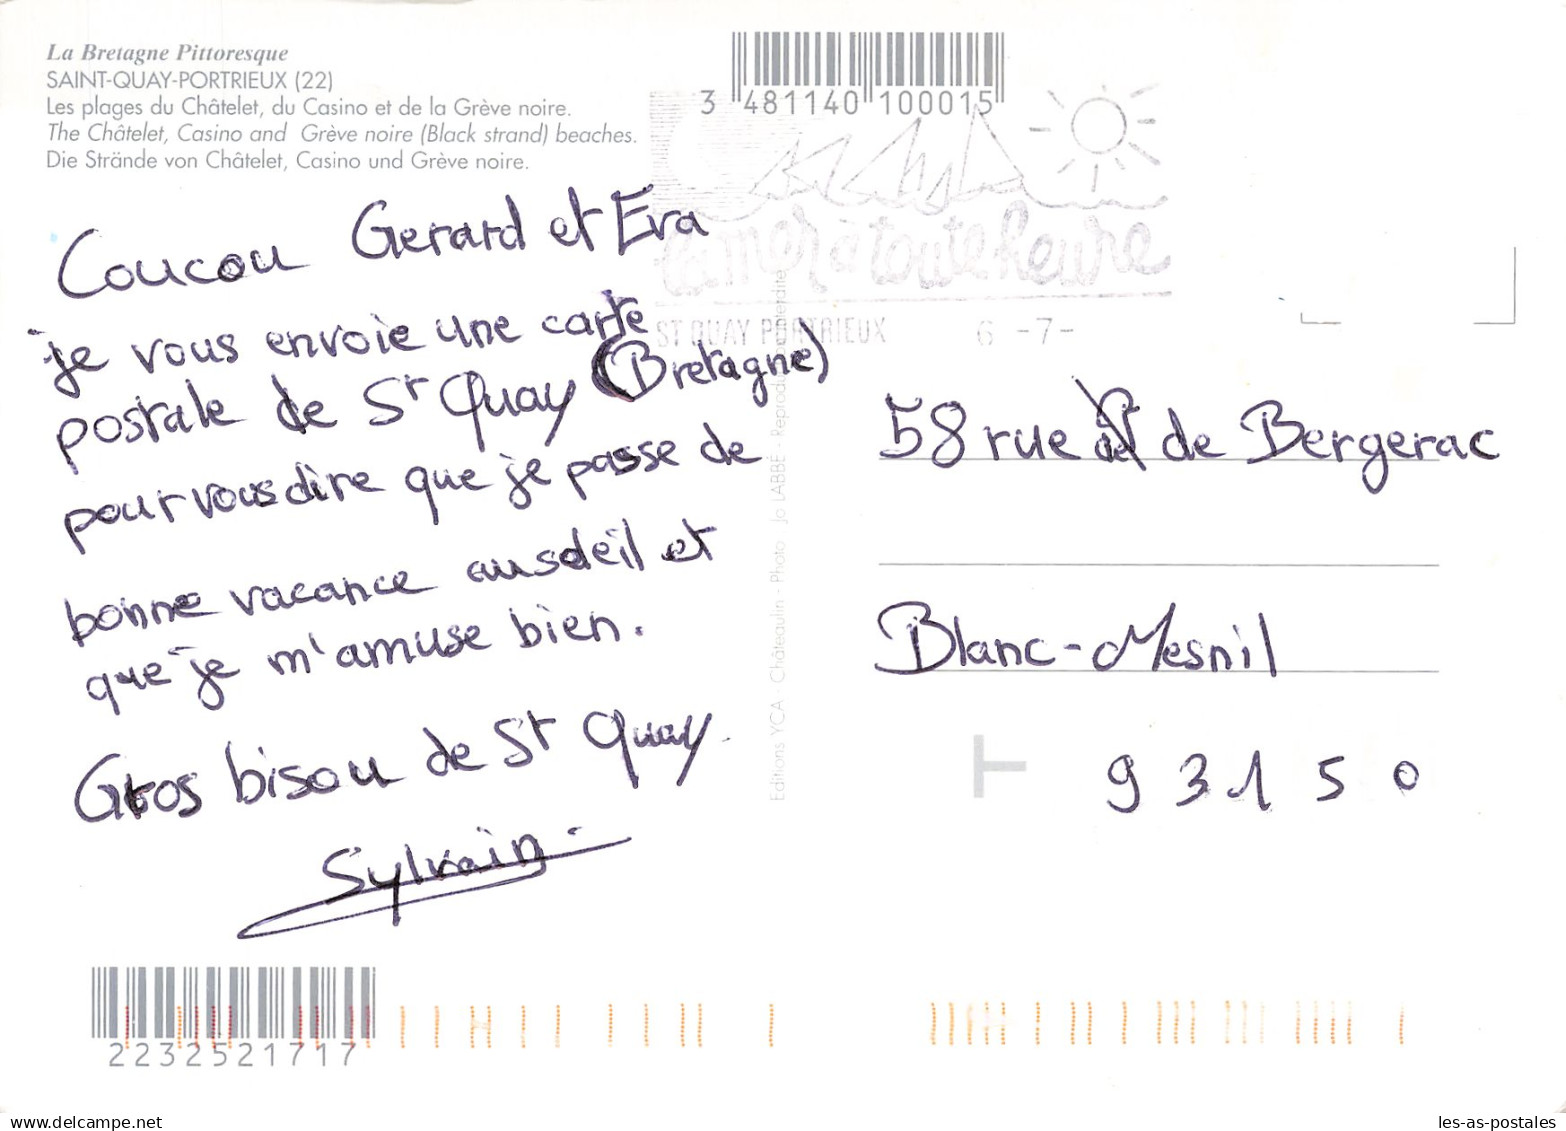 La Bretagne Pittoresque
SAINT-QUAY-PORTRIEUX (22)
Les plages du Châtelet, du Casino et de la Grève noire.
The Châtelet, Casino and Grève noire (Black strand) beaches.
Die Strände von Châtelet, Casino und Grève noire.
3 481140 100015
la mer à toute heure
ST QUAY PORTRIEUX 6 -7-
Coucou Gerard et Eva
je vous envoie une carte
postale de St Quay (Bretagne)
pour vous dire que je passe de
bonne vacance au soleil et
que je m'amuse bien.
Gros bisou de St Quay
Sylvain
Editions YCA - Châteaulin - Photo Jo LABBÉ - Reproduction interdite
58 rue de Bergerac
Blanc-Mesnil
93150
2232521717
delcampe.net
les-as-postales